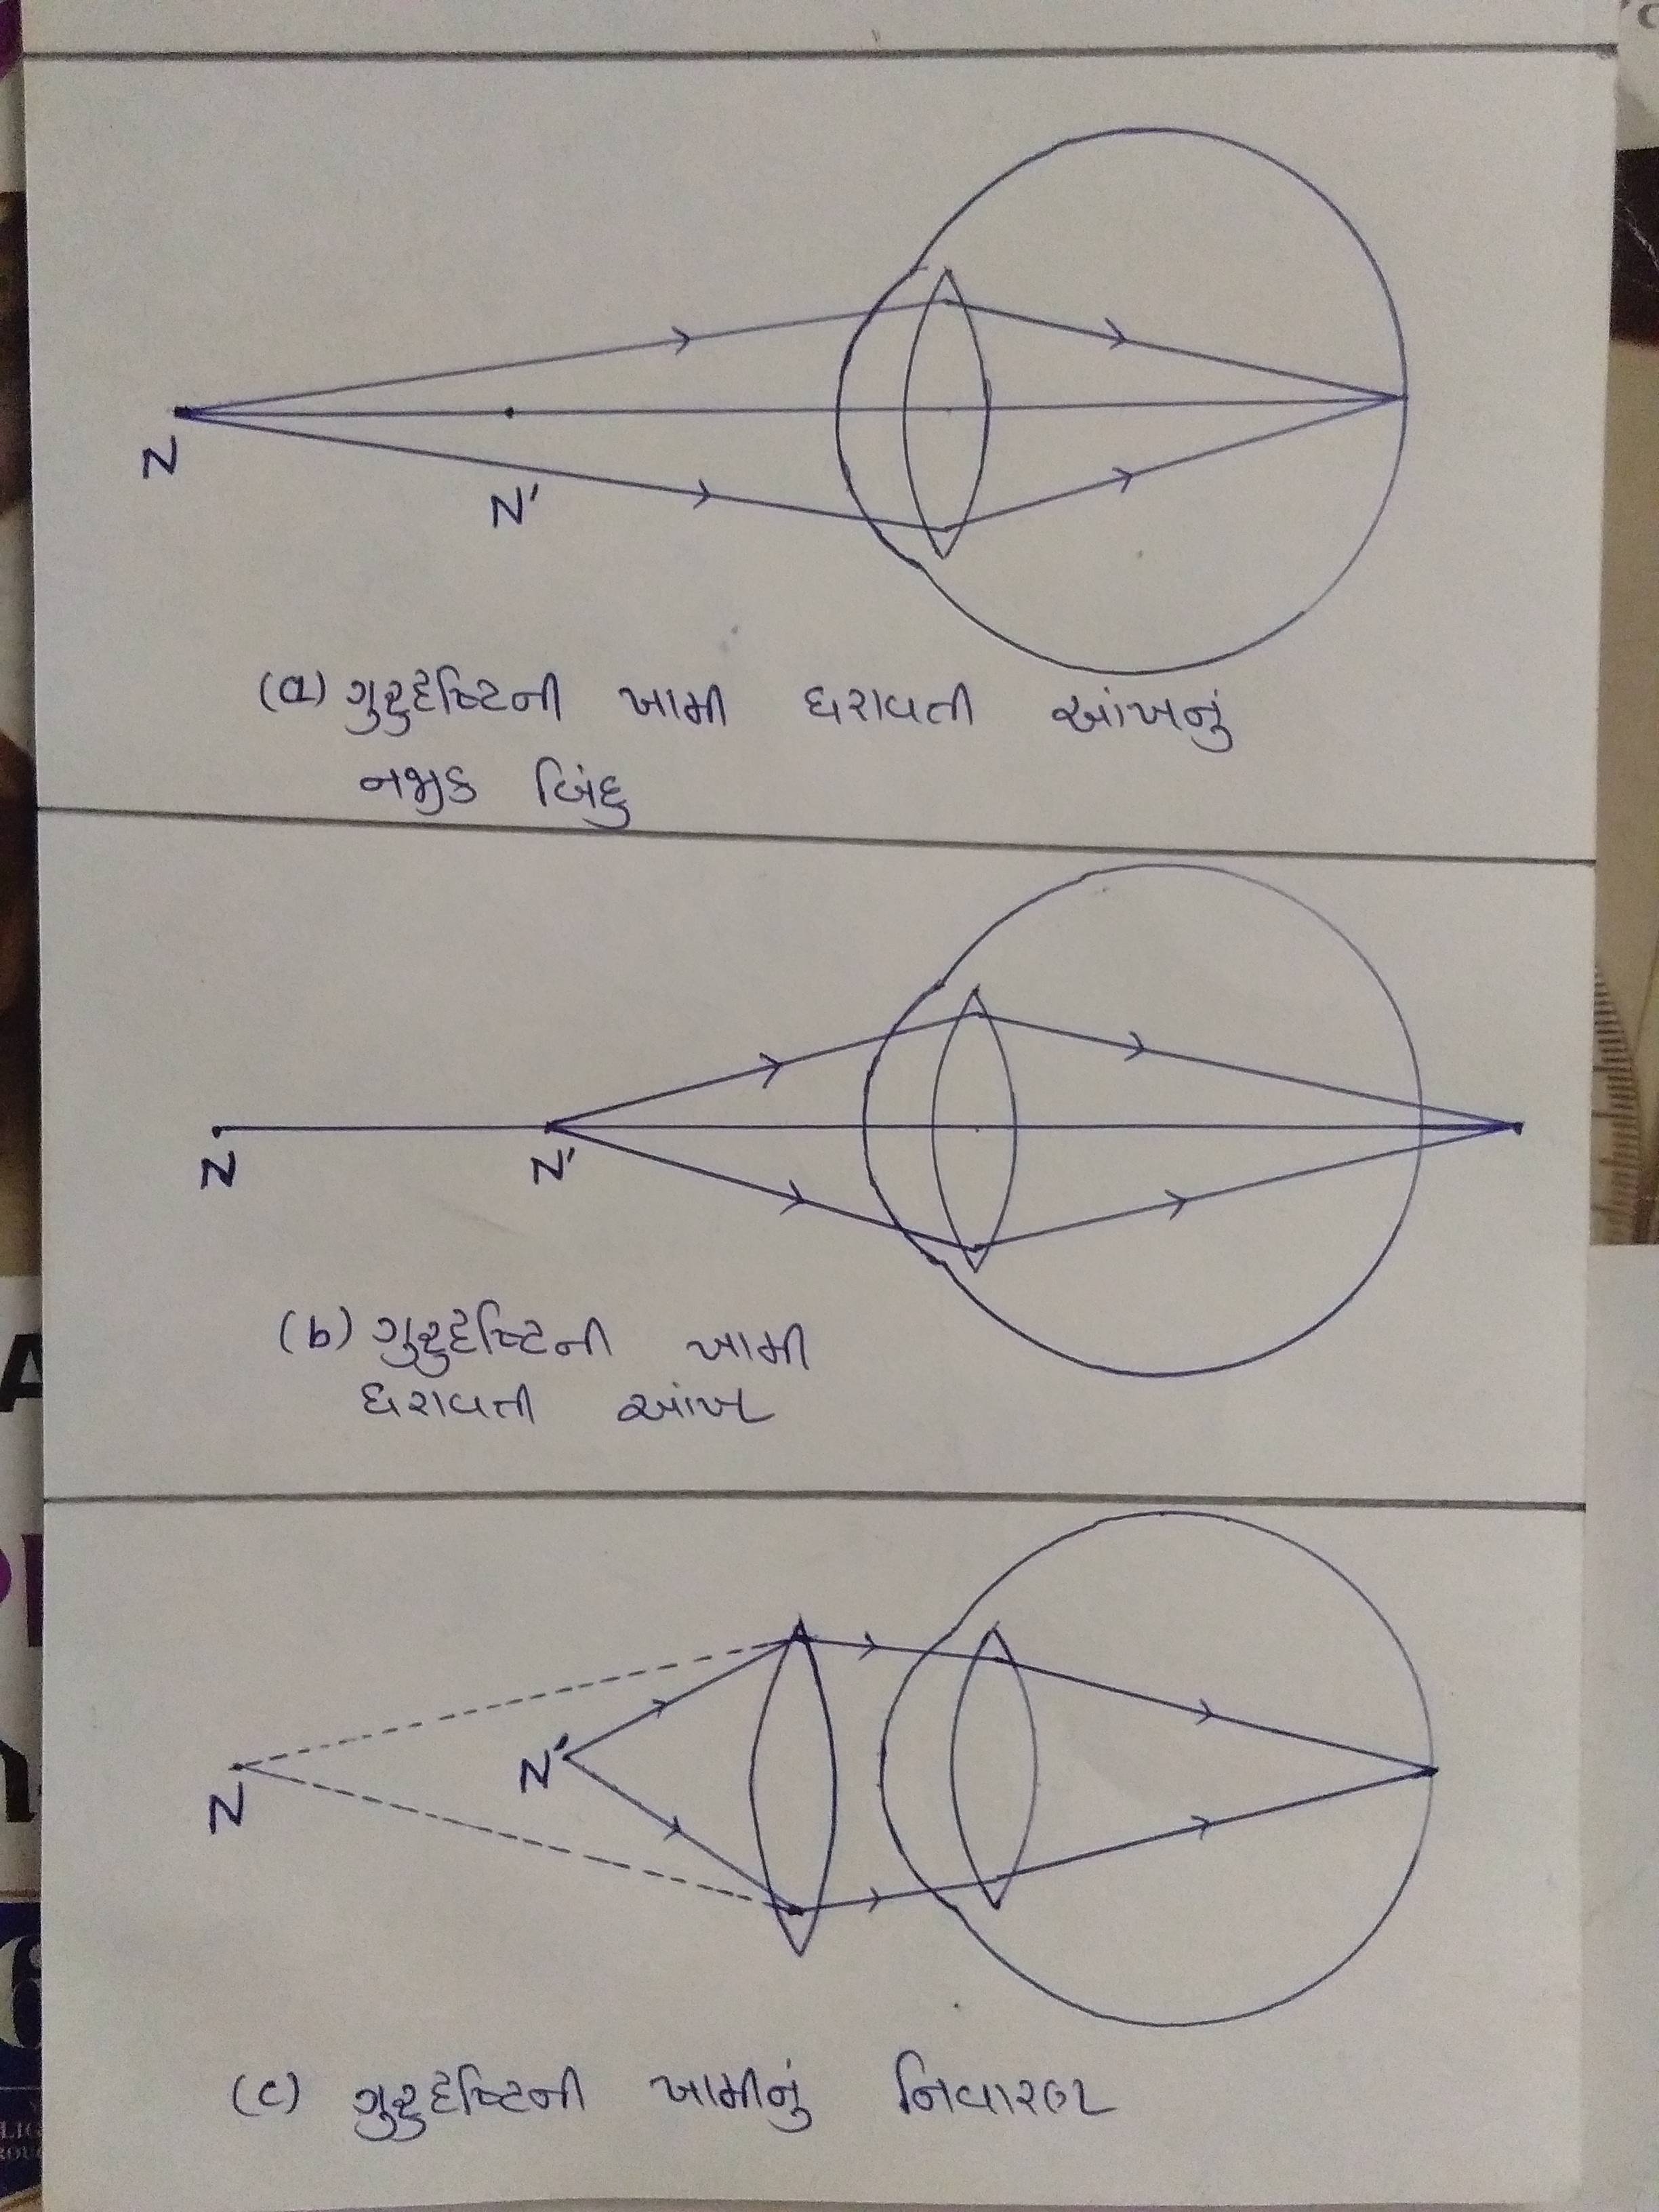 N
N'
(a) ગુરુદૃષ્ટિની ખામી ધરાવતી આંખનું
નજીક બિંદુ
N
N'
(b) ગુરુદૃષ્ટિની ખામી
ધરાવતી આંખ
N'
N
(c) ગુરુદૃષ્ટિની ખામીનું નિવારણ